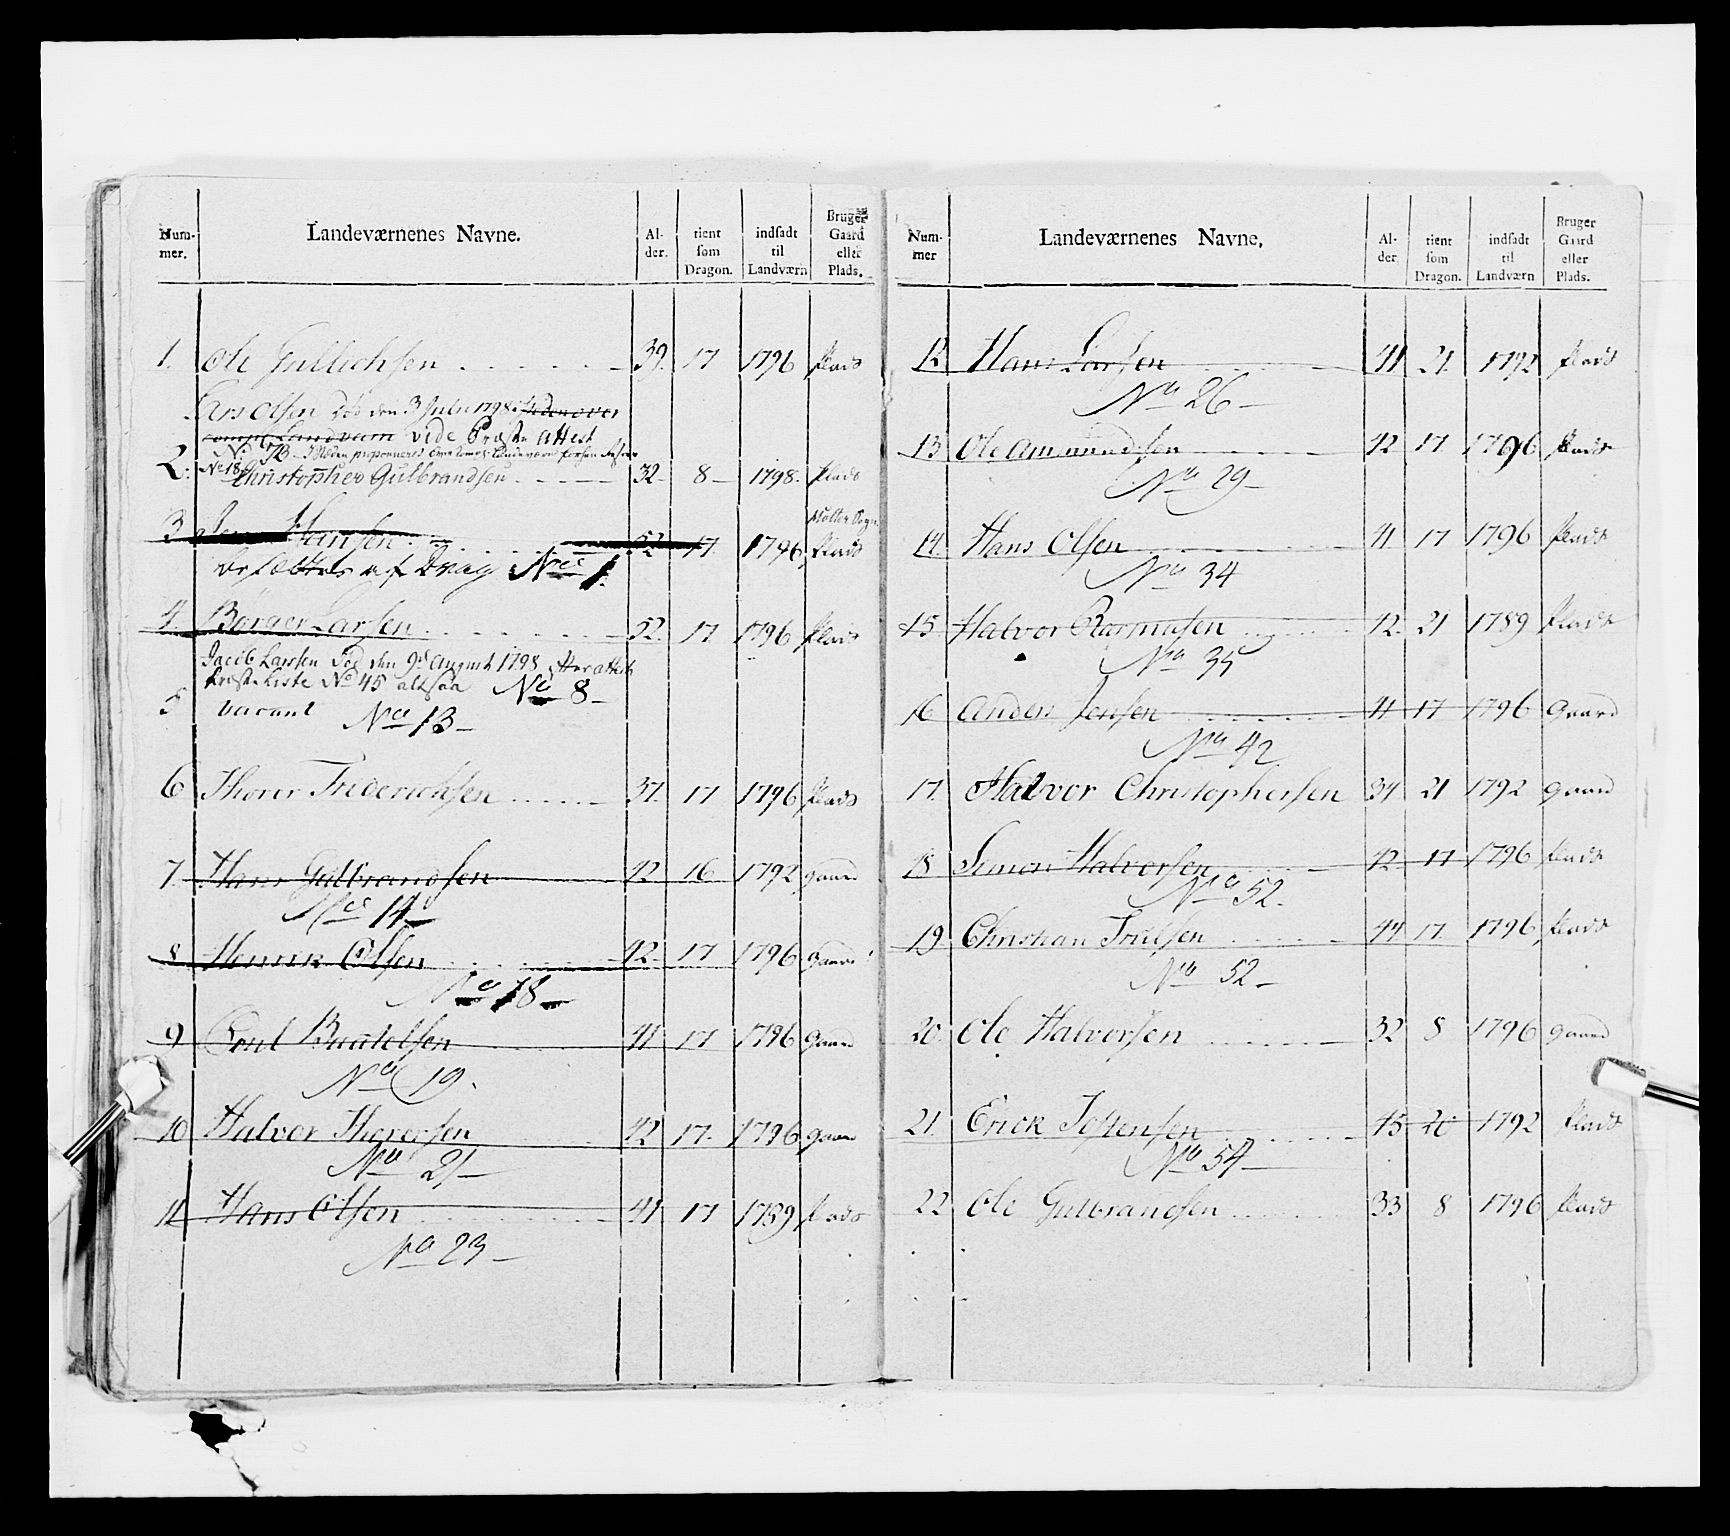 Num-
mer.
Landeværnenes Navne.
Al-
der.
tient
som
Dragon.
indsadt
til
Landværn
Bruger
Gaard
eller
Plads.
1. Ole Gullichsen 39. 17 1796 plads
Lars Olsen død den 3 Julii 1798
vide Præste Attest
No. 73
2. No 18 Christopher Gulbrandsen 32. 8 1798. plads
3 Hansen 52 17. 1796 plads
af Drag No 1.
4. Børger Larsen 52. 17 1796 plads
Jacob Larsen død den 9de August 1798
Liste No 45 altsaa No 8
5 vacant No 13
6 Thorer Friderichsen 37. 17 1796 plads
7. Hans Gulbrandsen 42 16 1792 gaard
No 14
8. Henrik Olsen 42. 17 1796 gaard
No 18
9 Poul Baltelsen 41 17 1796 gaard
No 19.
10 Halvor Thorersen 42 17. 1796 gaard
No 21
11 Hans Olsen 41 17 1789 plads
No 23
Num-
mer
Landeværnenes Navne.
Al-
der.
tient
som
Dragon.
indsadt
til
Landværn
Bruger
Gaard
eller
Plads.
12 Hans Larsen 41 21. 1792 plads
No 26
13 Ole Ammundsen 42 17 1796 plads
No 29
14. Hans Olsen 41. 17 1796 plads
No 34
15 Halvor Rasmusen 42. 21 1789 plads
No 35
16 Anders Jensen 41 17 1796 Gaard
No 42
17. Halvor Christophersen 34 21 1792 gaard
18 Simon Halvorsen 42. 17 1796 plads
No 52.
19 Christian Truelsen 44 17. 1796 plads
No 52
20. Ole Halvorsen 32 8 1796 gaard
21. Erick Jostensen 45 20 1792 plads
No 54
22 Ole Gulbrandsen 33 8 1796 plads